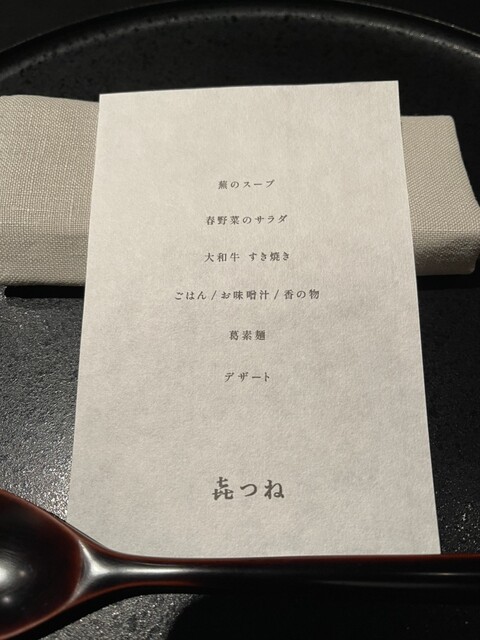 蕪のスープ
春野菜のサラダ
大和牛 すき焼き
ごはん / お味噌汁 / 香の物
葛素麺
デザート
㐂つね